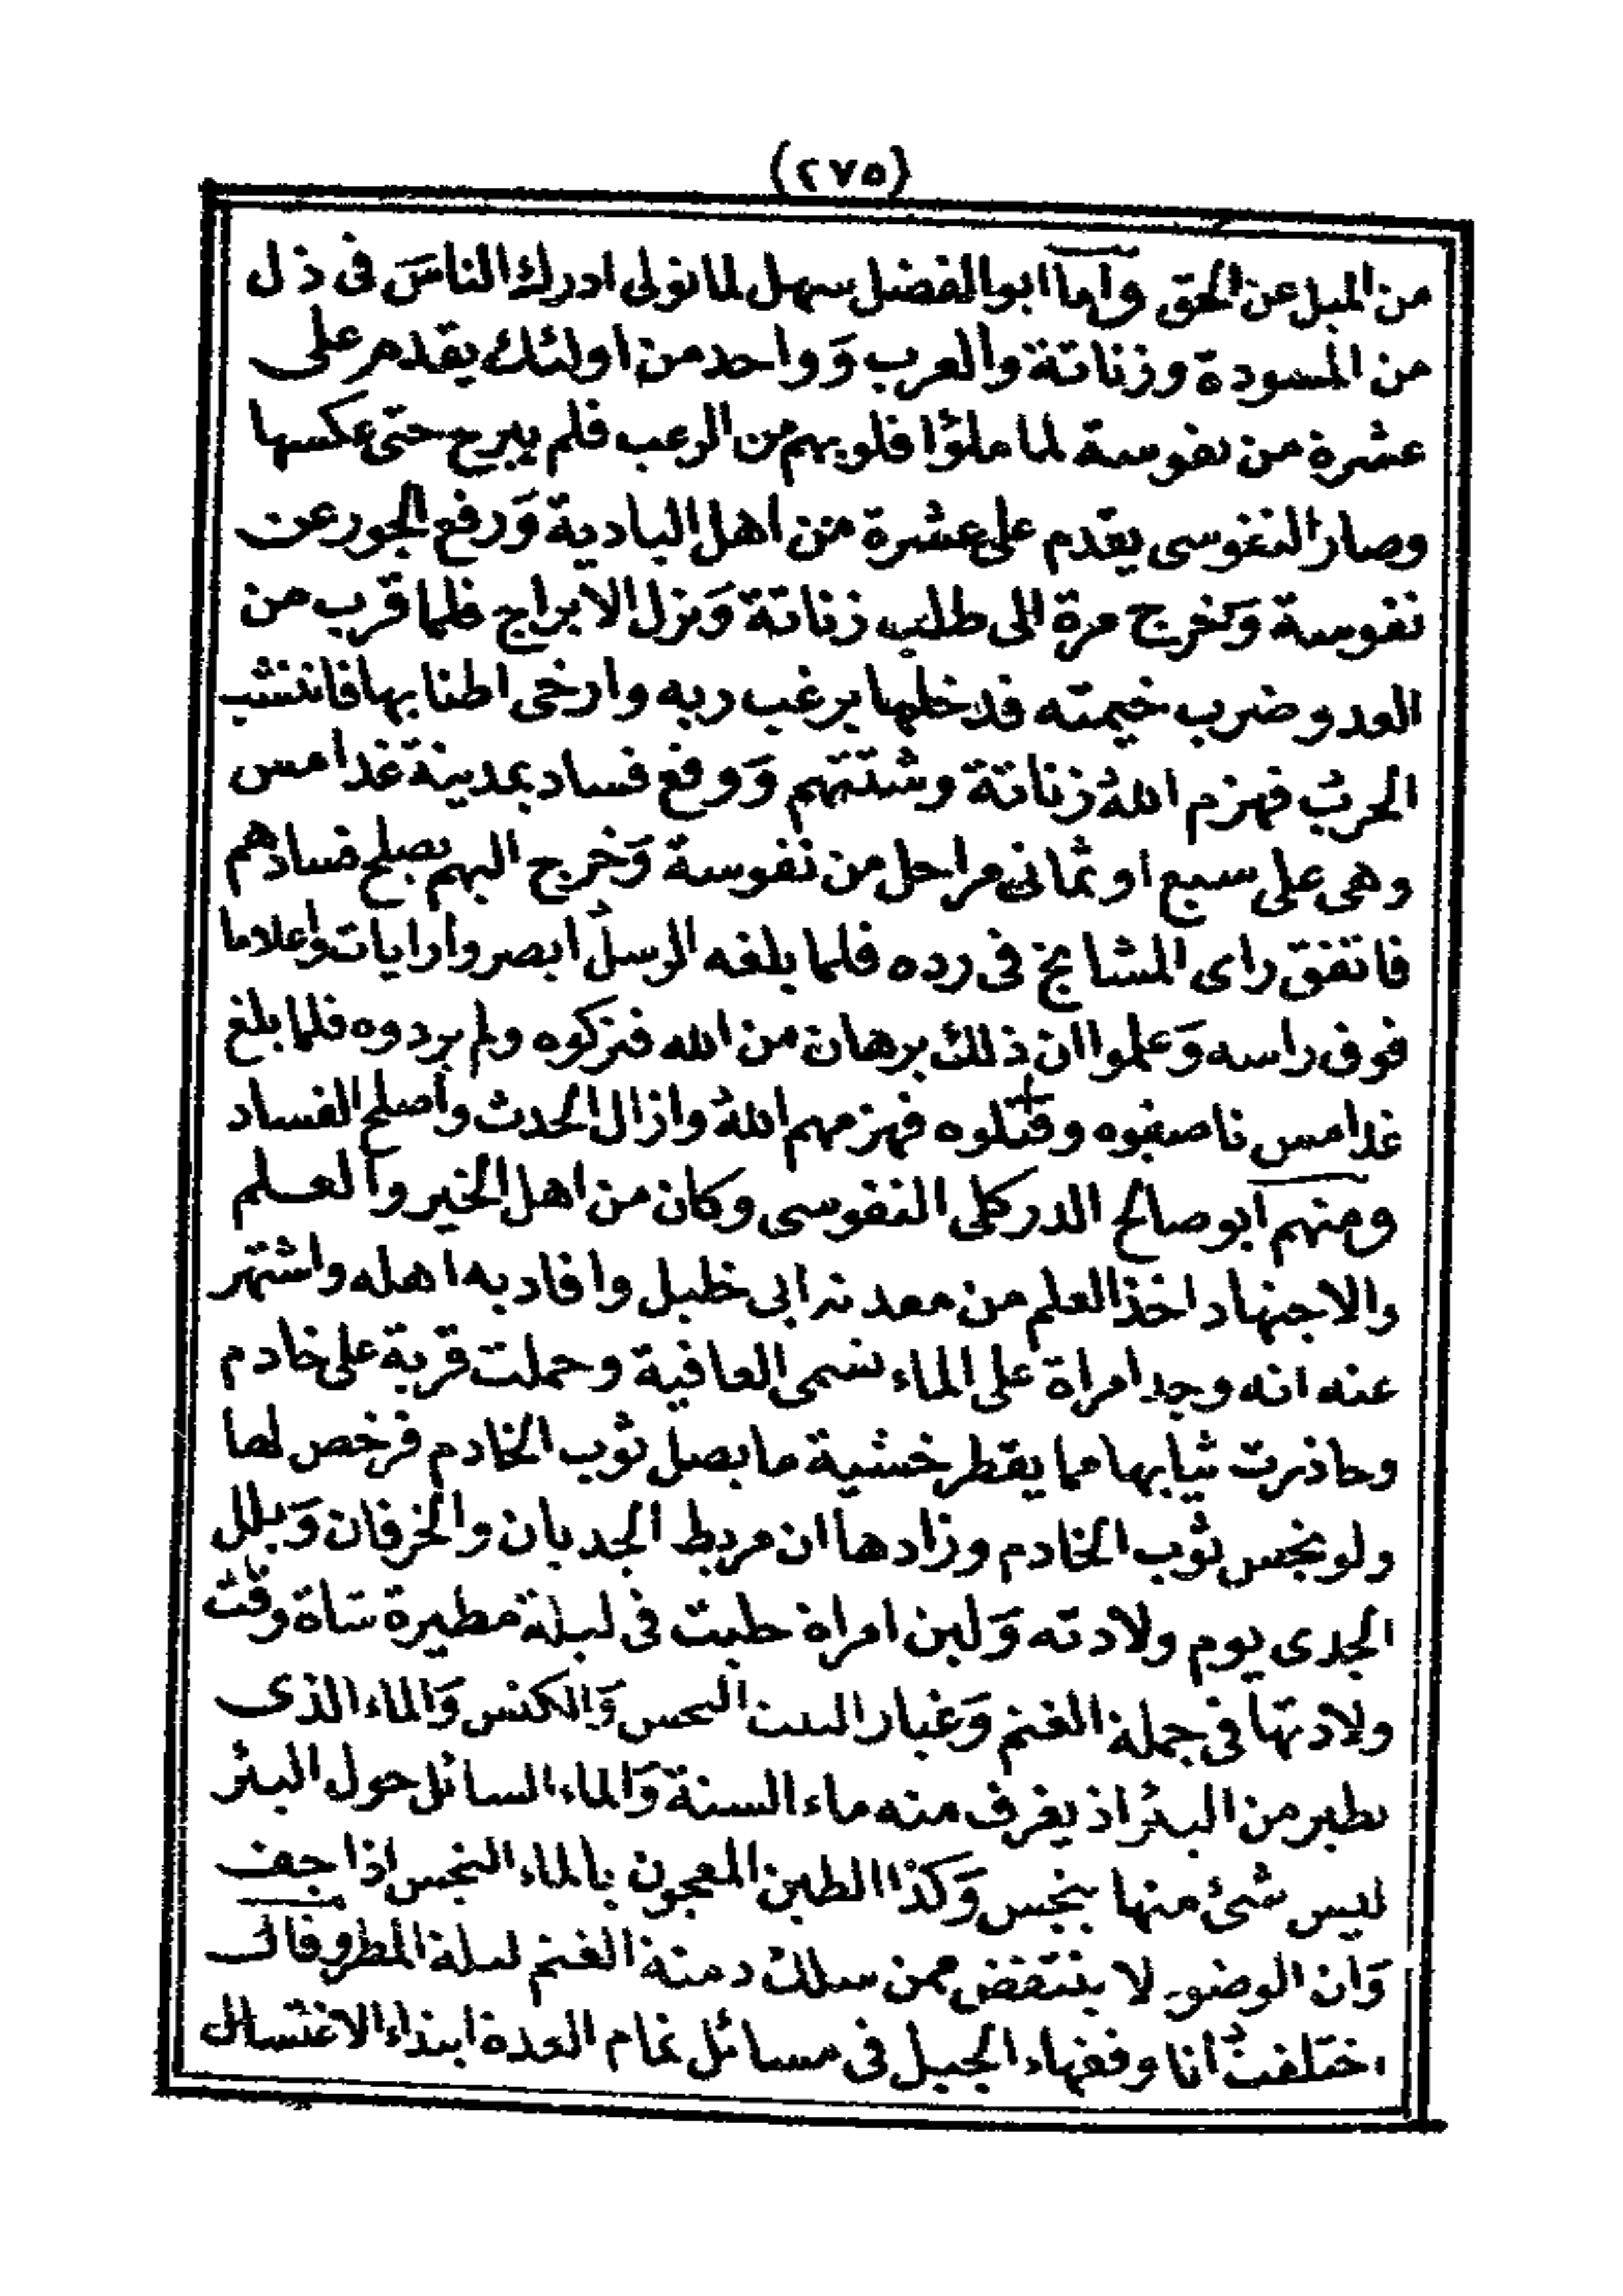 (٢٧٥)
من الميل عن الحق واما ابو الفضل سهل لما تولى ادرك الناسَ فى ذل
من المسودة وزناتة والعرب وَواحد من اولئك يقدم على
عشرة من نفوسة لما ملؤا قلوبهم من الرعب فلم يبرح حتى عكسها
وصار النفوسى يقدم على عشرة من اهل البادية وَرفع الجور عن
نفوسة وَخرج مرة الى طلب زناتة وَنزل الابراج فلما قرب من
العدو ضرب خيمته فدخلها يرغب ربه وارخى اطنابها فانتشب
الحربُ فهزم اللهُ زناتة وشتتهم وَوقع فساد بمدينة غدامس
وهى على سبع او ثمانى مراحل من نفوسة وَخرج اليهم يصلح فسادهم
فاتفق راى المشايخ فى رده فلما بلغه الرسلُ ابصروا رايات واعلاما
فوق راسه وَعلموا ان ذلك برهان من الله فتركوه ولم يردوه فلما بلغ
غدامس ناصبوه وقتلوه فهزمهم اللهُ وازال الحدث واصلح الفساد
ومنهم ابو صالح الدركلى النفوسى وكان من اهل الخير والعلم
والاجتهاد اخذ العلم من معدنه ابى خليل وافاد به اهله واشتهر
عنه انه وجد امراة على الماء تسمى العافية وحملت قربة على خادم
وحاذرت ثيابها مما يقطر خشية ما يصل ثوب الخادم فرخص لها
ولو نجس ثوب الخادم وزادها ان مربط الجديان والخرفان وَبلل
الجدى يوم ولادته وَلبن امراة حلبت فى ليلة مطيرة شاة وقت
ولادتها فى جملة الغنم وَغبار البيت النجس وَالكنس وَالماء الذى
يطير من البئر اذ يغرف منه ماء السنة وَالماء السائل حول البئر
ليس شئ منها بنجس وَكذا الطين المعجون بالماء النجس اذا جف
وَان الوضوء لا ينتقض ممن سلك دمنة الغنم ليلة المطر وقال
اختلفتُ انا وفقهاء الجبل فى مسائل تمام العدة ابتداء الاغتسال